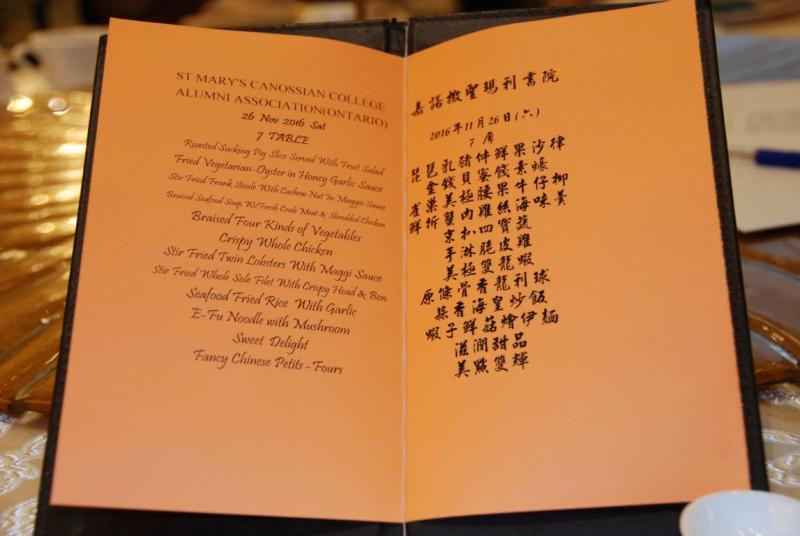 ST MARY'S CANOSSIAN COLLEGE
ALUMNI ASSOCIATION(ONTARIO)
26 Nov 2016 Sat
7 TABLE
Roasted Sucking Pig Slice Served With Fruit Salad
Fried Vegetarian-Oyster in Honey Garlic Sauce
Stir Fried Frank Steale With Cashew Nut In Maggie Sauce
Braised Seafood Soup W/Fresh Crab Meat & Shredded Chicken
Braised Four Kinds of Vegetables
Crispy Whole Chicken
Stir Fried Twin Lobsters With Maggi Sauce
Stir Fried Whole Sole Filet With Crispy Head & Bon
Seafood Fried Rice With Garlic
E-Fu Noodle with Mushroom
Sweet Delight
Fancy Chinese Petits-Fours
嘉諾撒聖瑪利書院
2016年11月26日(六)
7席
琵琶乳豬伴鮮果沙律
金錢貝蜜餞素蠔
雀巢美極腰果牛仔柳
鮮拆蟹肉雞絲海味羹
京扒四寶蔬
手淋脆皮雞
美極雙龍蝦
原條骨香龍利球
蒜香海皇炒飯
蝦子鮮菇燴伊麵
滋潤甜品
美點雙輝